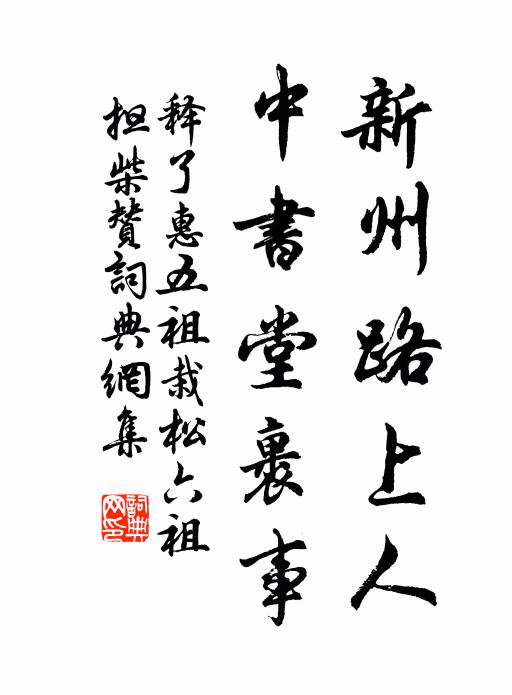 新州路上人
中書堂裹事
释了惠五祖栽松六祖
担柴赞詞典網集
詞典网印